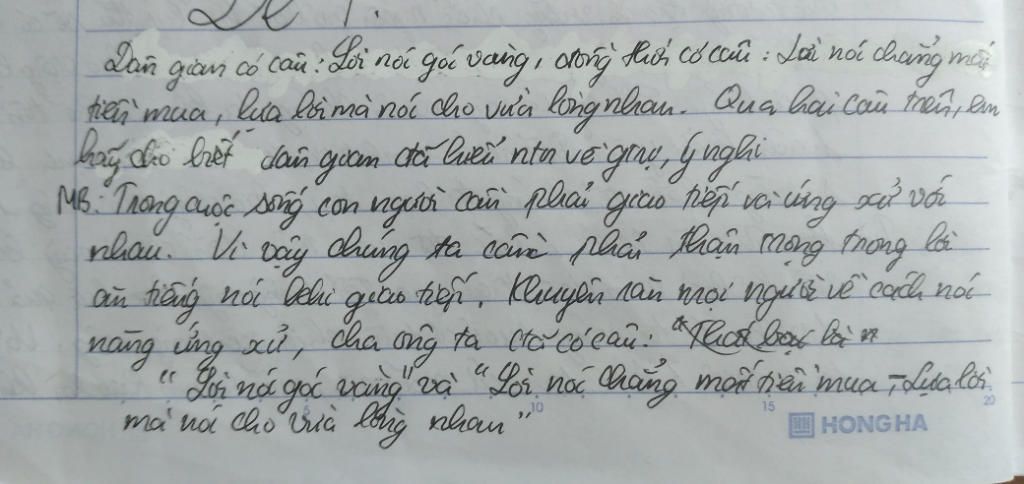 Đề 1.
Dân gian có câu: Lời nói gói vàng, đồng thời có câu: Lời nói chẳng mất
tiền mua, lựa lời mà nói cho vừa lòng nhau. Qua hai câu trên, em
hãy cho biết dân gian đã hiểu ntn về giao, ý nghi
MB: Trong cuộc sống con người cần phải giao tiếp và ứng xử với
nhau. Vì vậy chúng ta cần phải thận trọng trong lời
ăn tiếng nói khi giao tiếp. Khuyên răn mọi người về cách nói
năng ứng xử, cha ông ta đã có câu:
"Lời nói gói vàng" và "Lời nói chẳng mất tiền mua - Lựa lời
mà nói cho vừa lòng nhau"
5 10 15 20
HONG HA